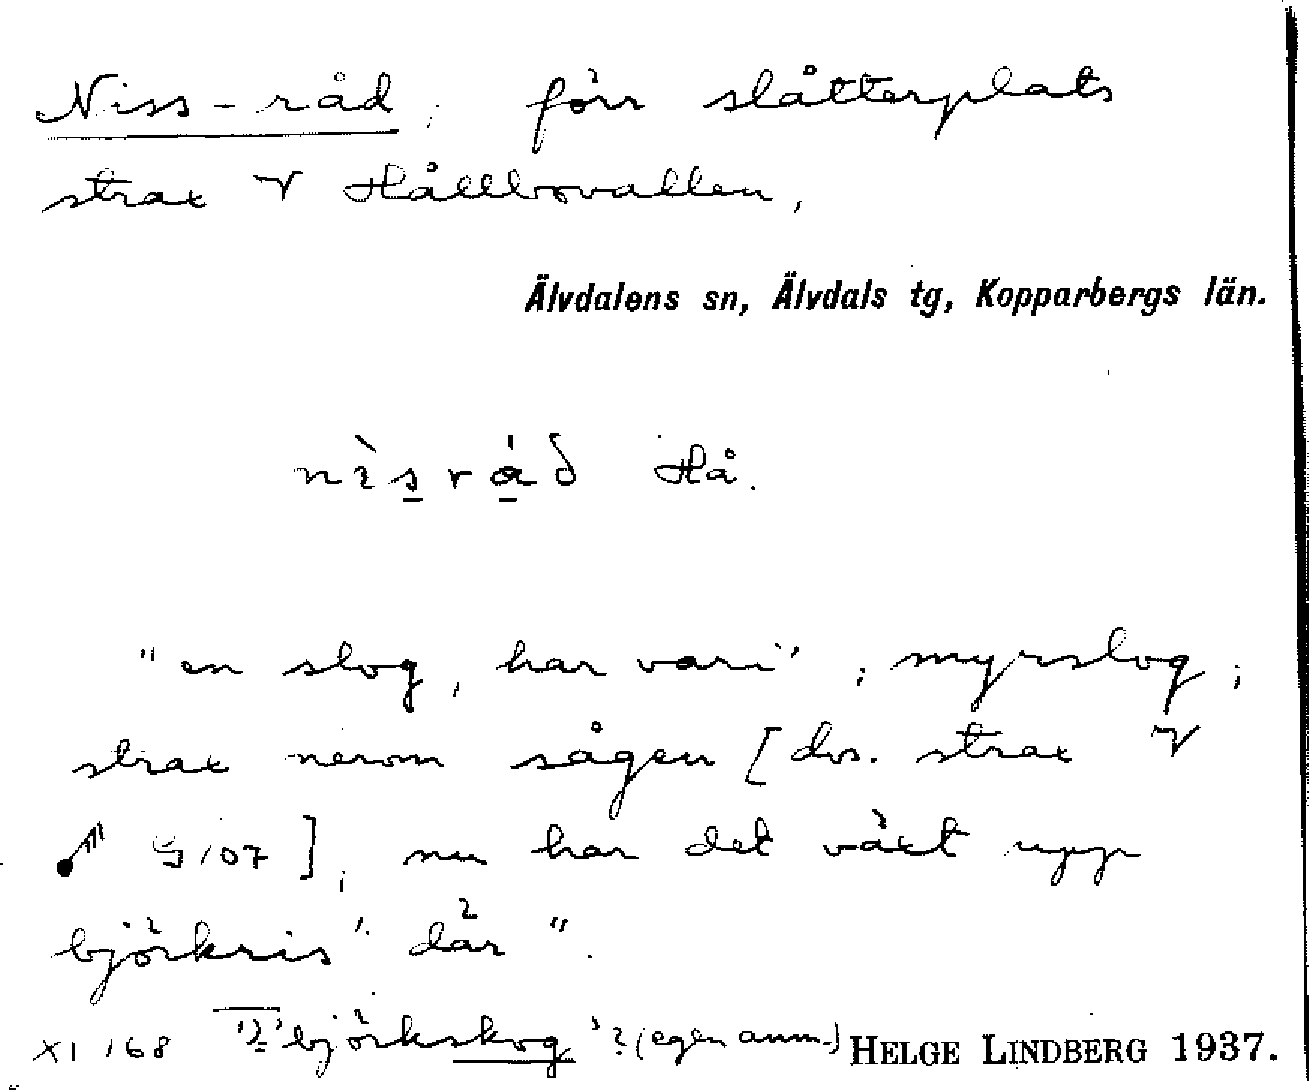 Niss-råd, förr slåtterplats
strax V Hållbovallen,
Älvdalens sn, Älvdals tg, Kopparbergs län.
Hå.
"en slog, har vari"; myrslog;
strax nerom sågen [dvs. strax V
G107], nu har det växt upp
björkris" där".
XI 168 "björkskog"? (egen anm.) HELGE LINDBERG 1937.